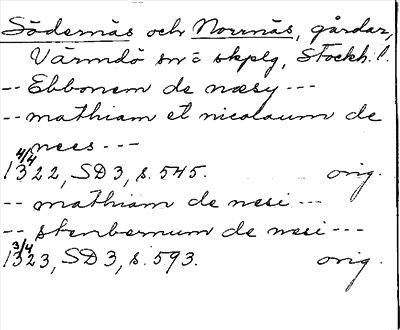 Södernäs och Norrnäs, gårdar,
Värmdö sn o skplg, Stockh. l.
-- Ebbonem de næsy ---
-- mathiam et nicolaum de
nees ---
4/4
1322, SD3, s. 545. orig.
-- mathiam de nesi ---
-- stenbernum de nesi ---
3/4
1323, SD3, s. 593. orig.